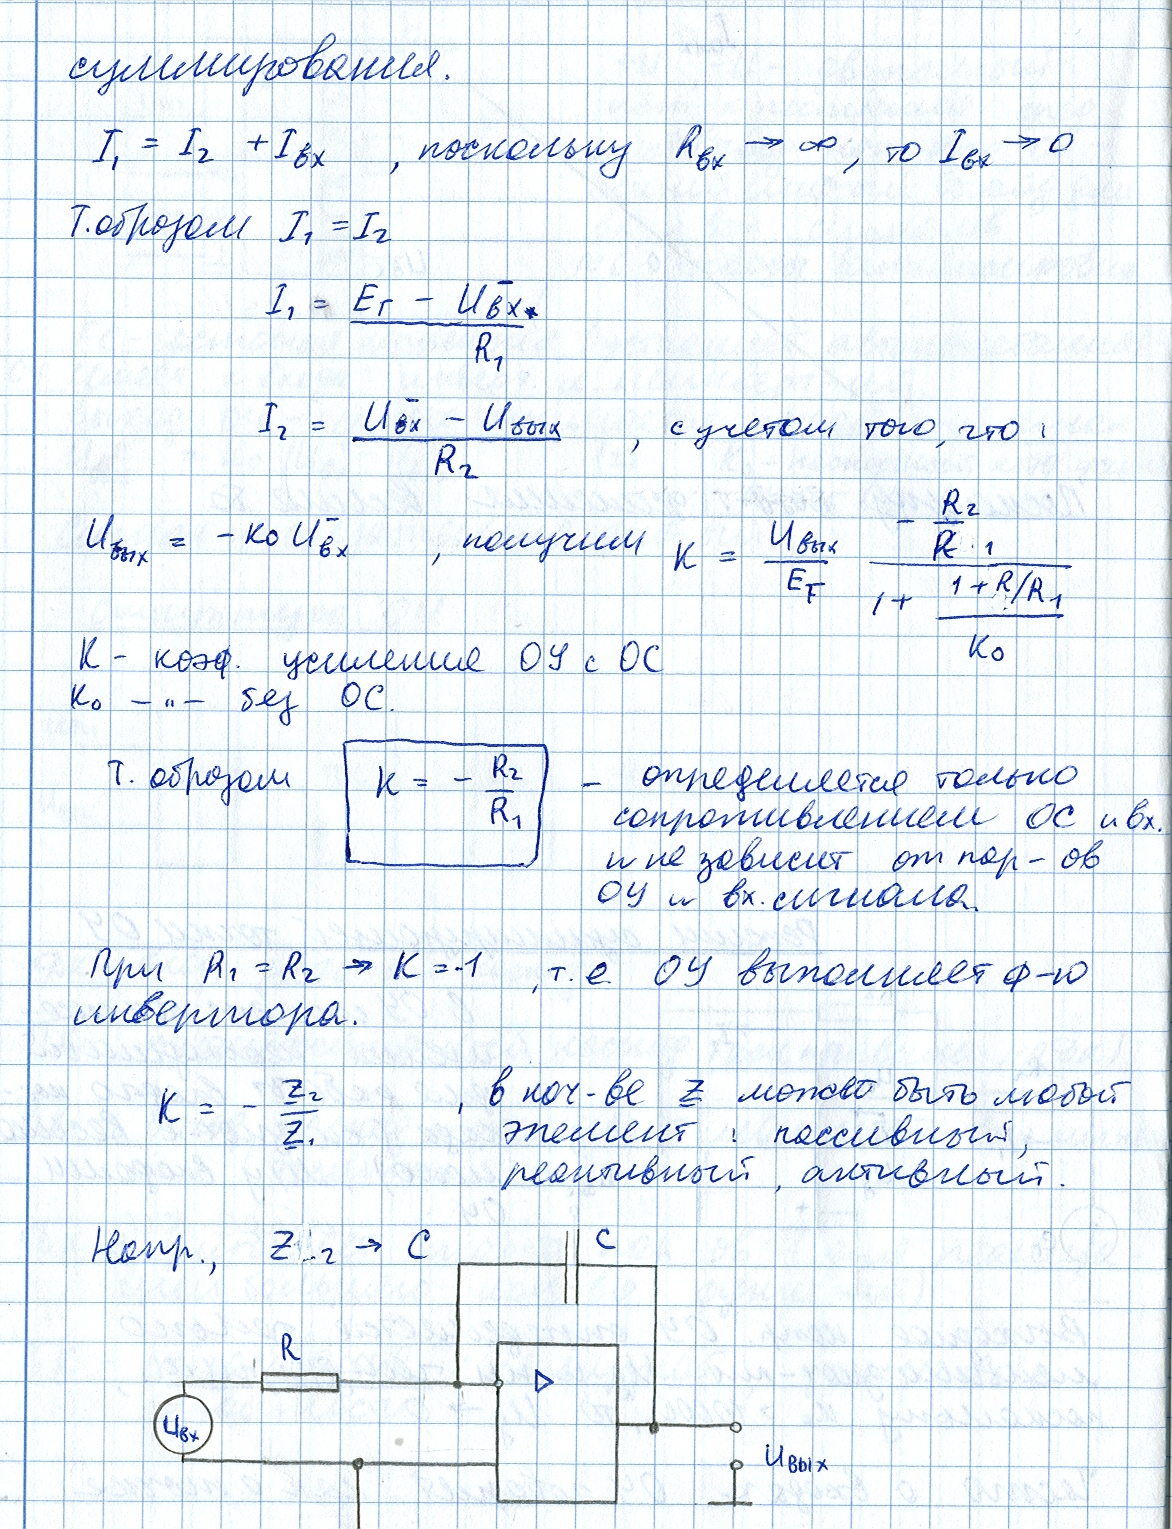 суммирования.
I₁ = I₂ + Iвх , поскольку Rвх → ∞, то Iвх → 0
Т. образом I₁ = I₂
I₁ = (Eг − U⁻вх) / R₁
I₂ = (U⁻вх − Uвых) / R₂ , с учетом того, что:
Uвых = −K₀ U⁻вх , получим K = Uвых / Eг  (− R₂/R · 1) / (1 + (1 + R/R₁) / K₀)
K − коэф. усиления ОУ с ОС
K₀ −〃− без ОС.
Т. образом K = − R₂/R₁ − определяется только
сопротивлением ОС и вх.
и не зависит от пар-ов
ОУ и вх. сигнала.
При R₁ = R₂ → K = -1 , т.е. ОУ выполняет ф-ю
инвертора.
K = − Z₂/Z₁ , в кач-ве Z может быть любой
элемент: пассивный,
реактивный, активный.
Напр., Z₂ → C
C
R
▷
Uвх
Uвых